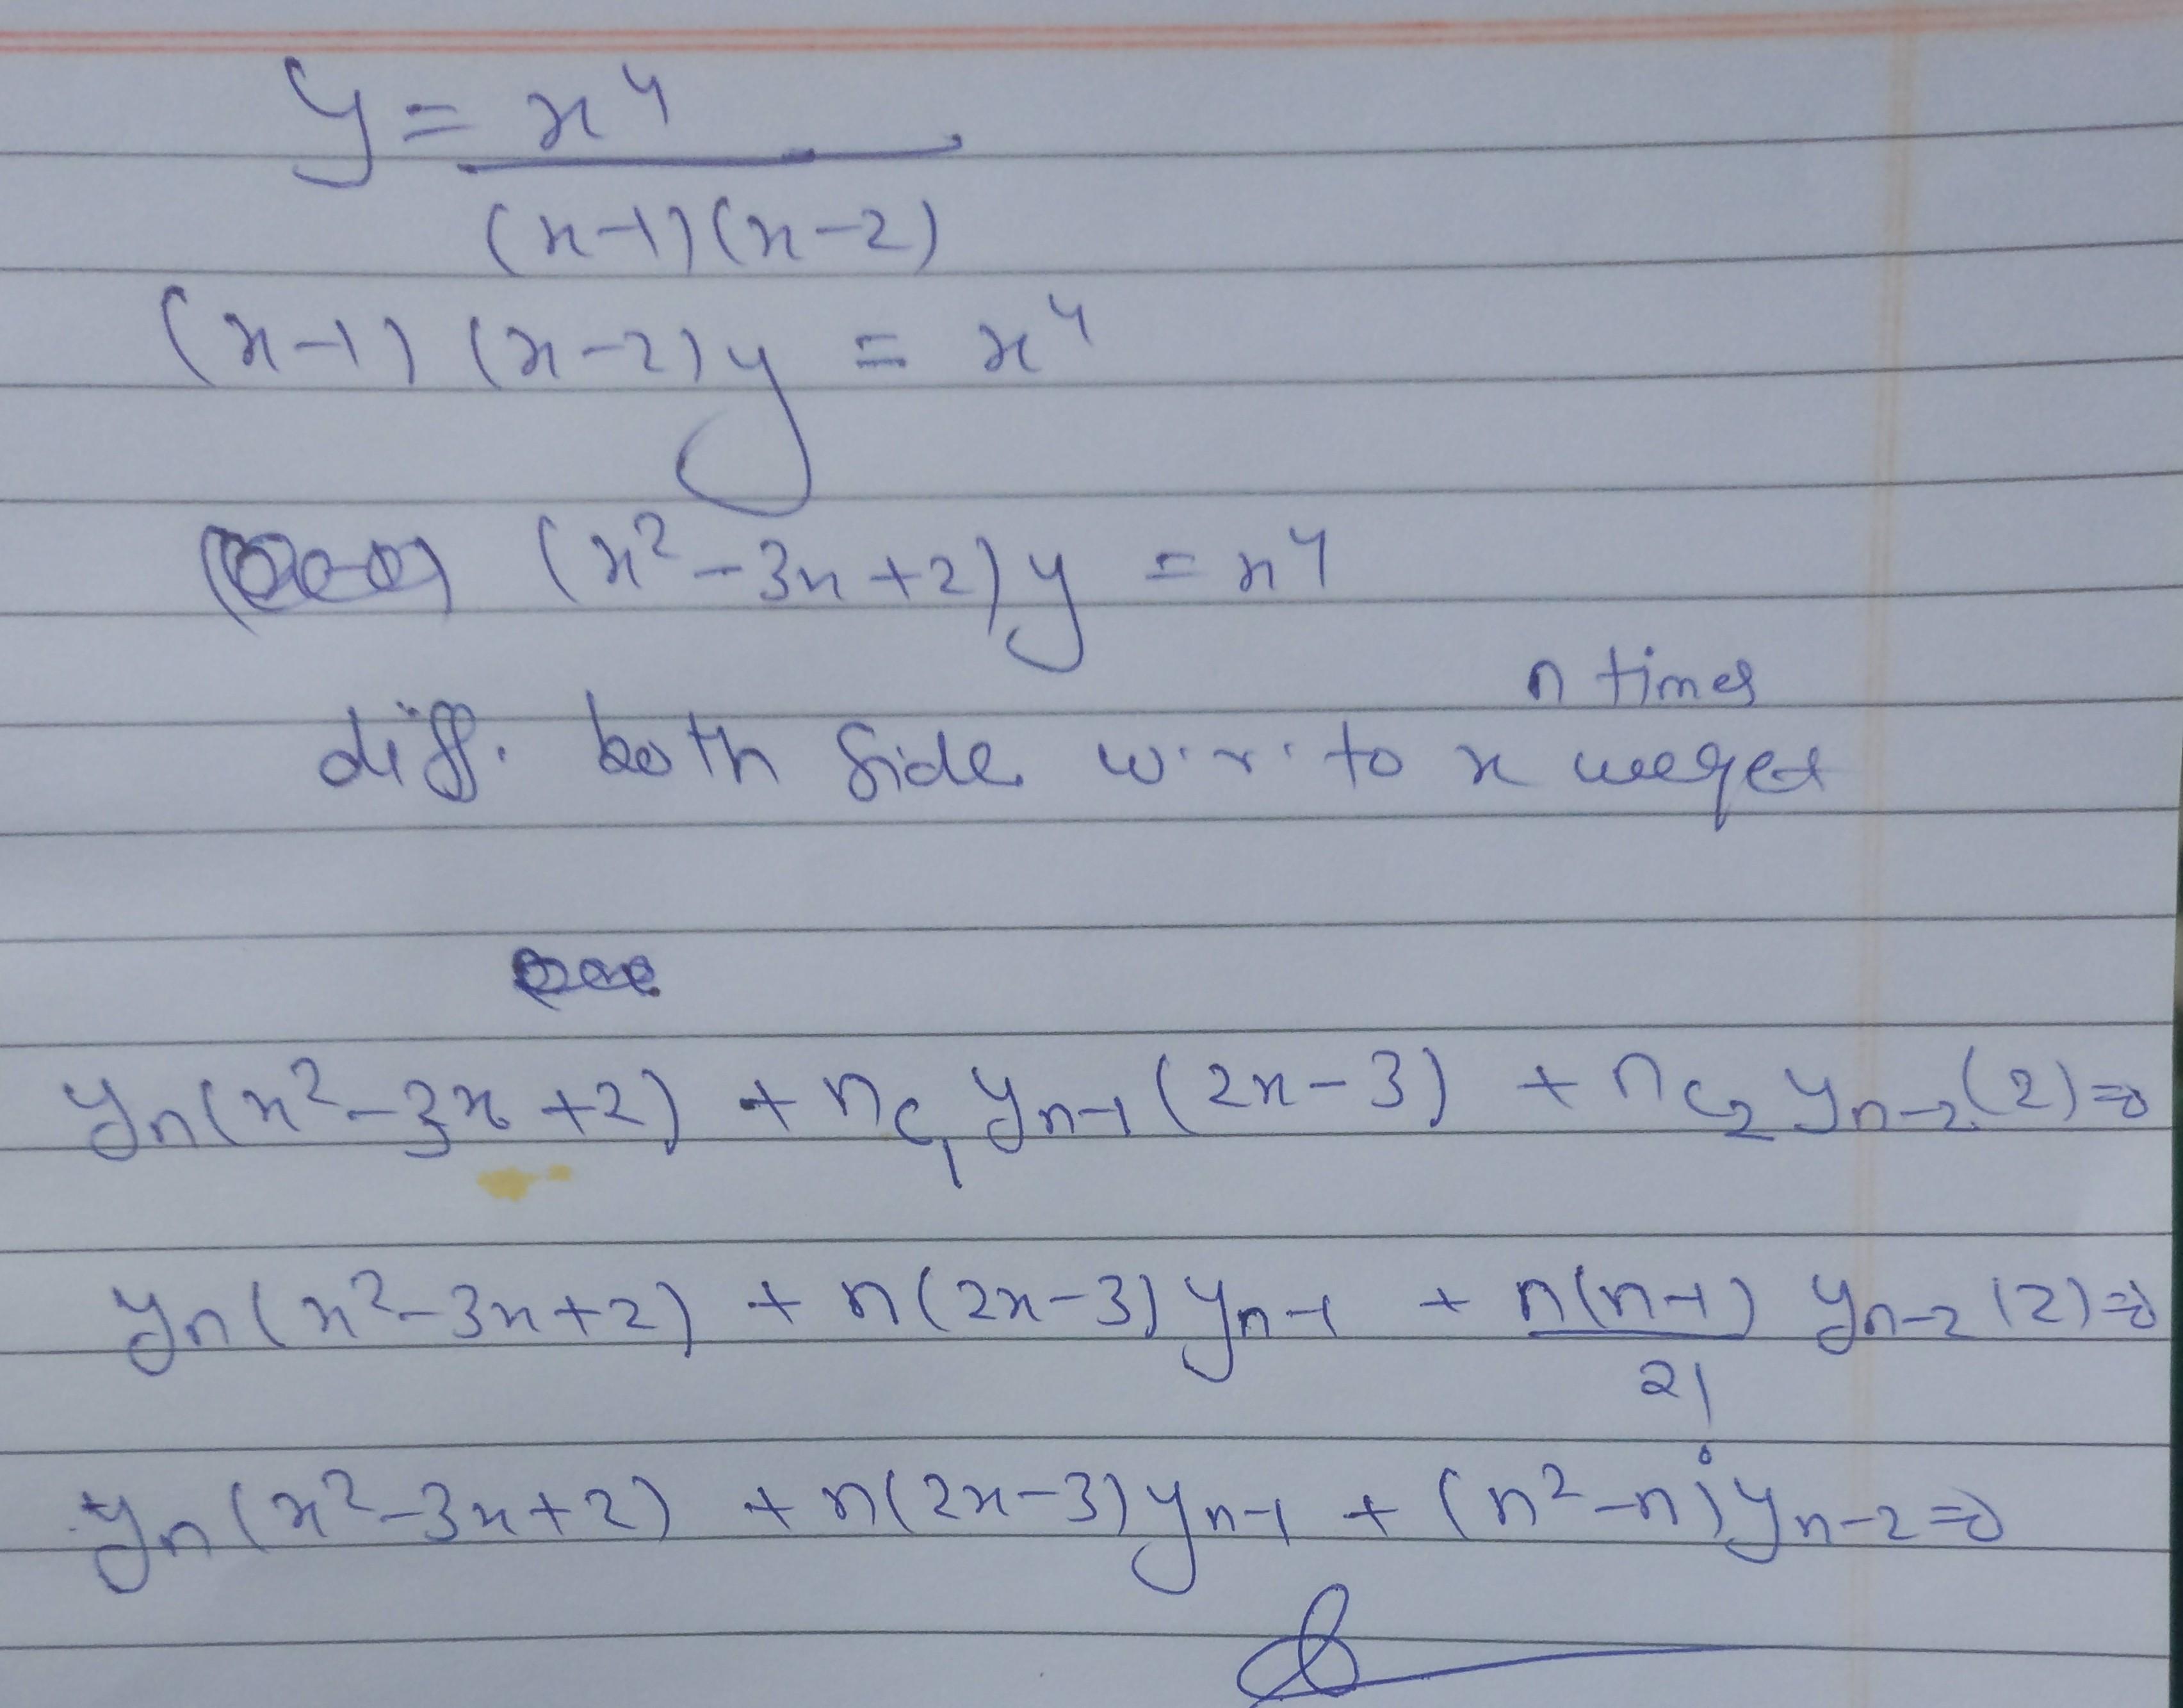 y = x⁴
(x-1)(x-2)
(x-1) (x-2) y = x⁴
(x²-3x+2) y = x⁴
n times
diff. both side w.r. to x we get
yₙ(x²-3x+2) + nc₁ yₙ₋₁ (2x-3) + nc₂ yₙ₋₂(2)=0
yₙ(x²-3x+2) + n(2x-3) yₙ₋₁ + n(n-1) yₙ₋₂ (2)=0
2!
yₙ(x²-3x+2) + n(2x-3) yₙ₋₁ + (n²-n) yₙ₋₂=0